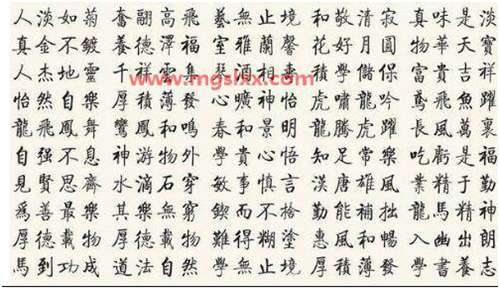 人淡如菊 奮翮高飛 藝無止境 和敬清寂 真味是淡
真金不鍍 養德澤福 室雅蘭馨 花好月圓 物華天寶
人杰地靈 千祥雲集 琴 相 積學儲 富貴吉祥
www.mgslxx.com
怡然自樂 厚積薄發 心曠神怡 虎嘯龍吟 鳶飛魚躍
龍飛鳳舞 鸞鳳和鳴 春和景明 龍騰虎躍 長風萬裏
自强不息 神游物外 學貴心悟 知足常樂 吃虧是福
見賢思齊 水滴石穿 敏事慎言 漢唐雄風 業精于勤
爲善最樂 其樂無窮 鍥而不捨 勤能補拙 龍馬精神
厚德載物 厚德載物 難得糊塗 惠風和暢 入幽出朗
馬到功成 道法自然 學無止境 厚積薄發 學書養志